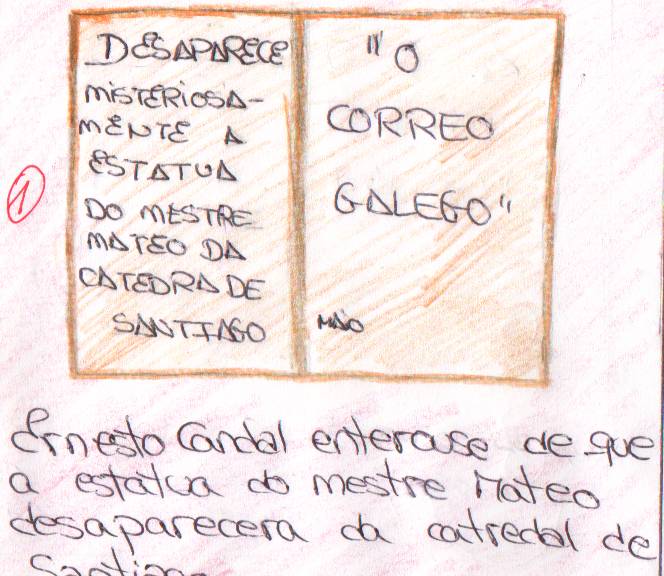 1
DESAPARECE
MISTERIOSA-
MENTE A
ESTATUA
DO MESTRE
MATEO DA
CATEDRA DE
SANTIAGO
"O
CORREO
GALEGO"
Ernesto Candal enterouse de que
a estatua do mestre Mateo
desaparecera da catredal de